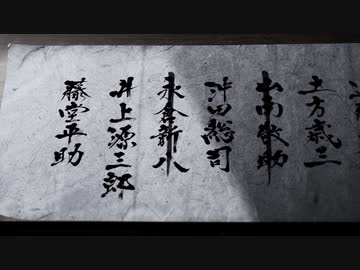 土方歳三
山南敬助
沖田総司
永倉新八
井上源三郎
藤堂平助